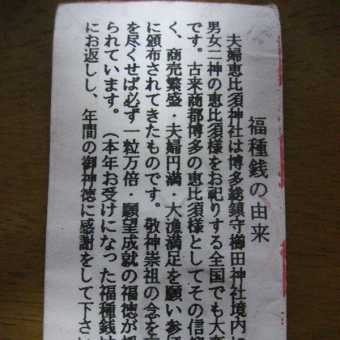 福種銭の由来
夫婦恵比須神社は博多総鎮守櫛田神社境内に
男女二神の恵比須様をお祀りする全国でも大変
です。古来商都博多の恵比須様としてその信
く、商売繁盛・夫婦円満・大漁満足を願い参
に頒布されてきたものです。敬神崇祖の念を
を尽くせば必ず一粒万倍・願望成就の福徳が
られています。（本年お受けになった福種銭は
にお返しし、年間の御神徳に感謝をして下さい